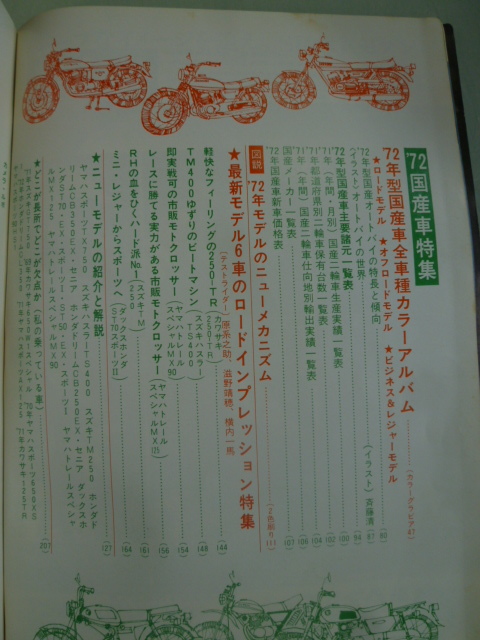 '72国産車特集
'72年型国産車全車種カラーアルバム(カラーグラビア47)
★ロードモデル ★オフロードモデル ★ビジネス&レジャーモデル
'72年型国産オートバイの特長と傾向 80
〈イラスト〉オートバイの世界 (イラスト)斉藤清(87)
'72年型国産車主要諸元一覧表 94
'71年(年間・月別)国産二輪車生産実績一覧表
'71年都道府県別二輪車保有台数一覧表 102
'71年(年間)国産二輪車仕向地別輸出実績一覧表 104
国産メーカー一覧表 106
'72年国産車新車価格表 107
図説 '72年モデルのニューメカニズム (2色刷り111)
★最新モデル6車のロードインプレッション特集
(テストライダー)原宗之助、滋野靖穂、横内一馬
軽快なフィーリングの250TR カワサキ250TR 144
TM400ゆずりのビートマシン スズキハスラーTS400 148
即実戦可の市販モトクロッサー ヤマハトレールスペシャルMX90 154
レースに勝てる実力がある市販モトクロッサー ヤマハトレールスペシャルMX125 156
RHの血をひくハード派No.1 スズキTM250 161
ミニ・レジャーからスポーツへ ダックスホンダST70スポーツII 164
★ニューモデルの紹介と解説 127
ヤマハスポーツTX750 スズキハスラーTS400 スズキTM250 ホンダド
リームCB350EX・セニア ホンダドリームCB250EX・セニア ダックスホ
ンダST70・EX・スポーツI・II ST50EX・スポーツI ヤマハトレールスペシャ
ルMX125 ヤマハトレールスペシャルMX90
★どこが長所でどこが欠点か(私の乗っている車) 207